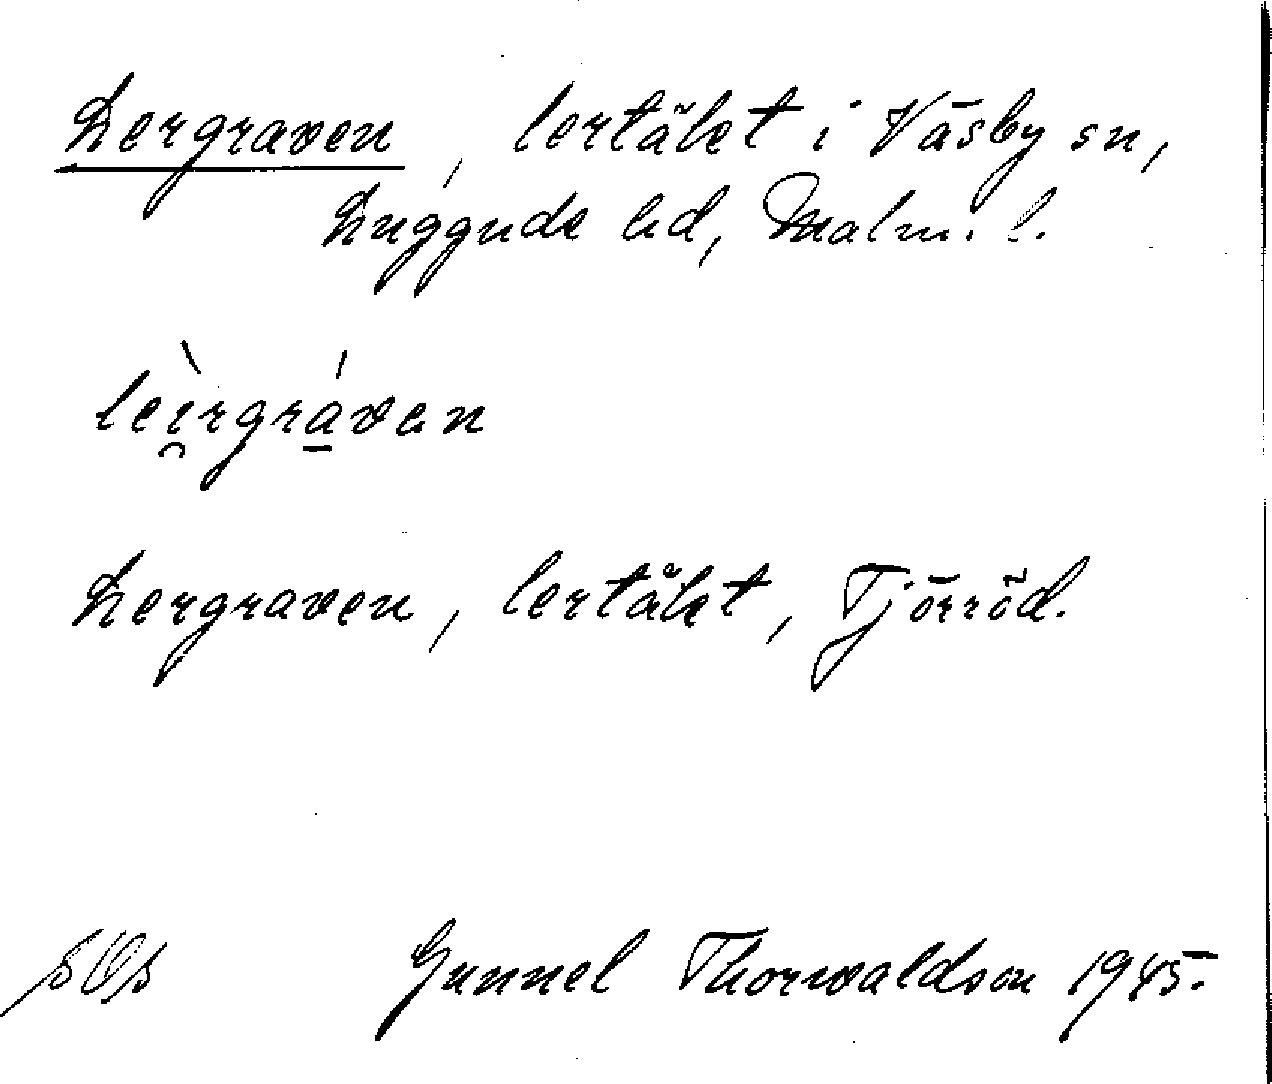 Lergraven, lertäkt i Väsby sn,
Luggude hd, Malm. l.
lèi̯rgrá̱vən
Lergraven, lertäkt, Tjörröd.
Gunnel Thorwaldson 1945.